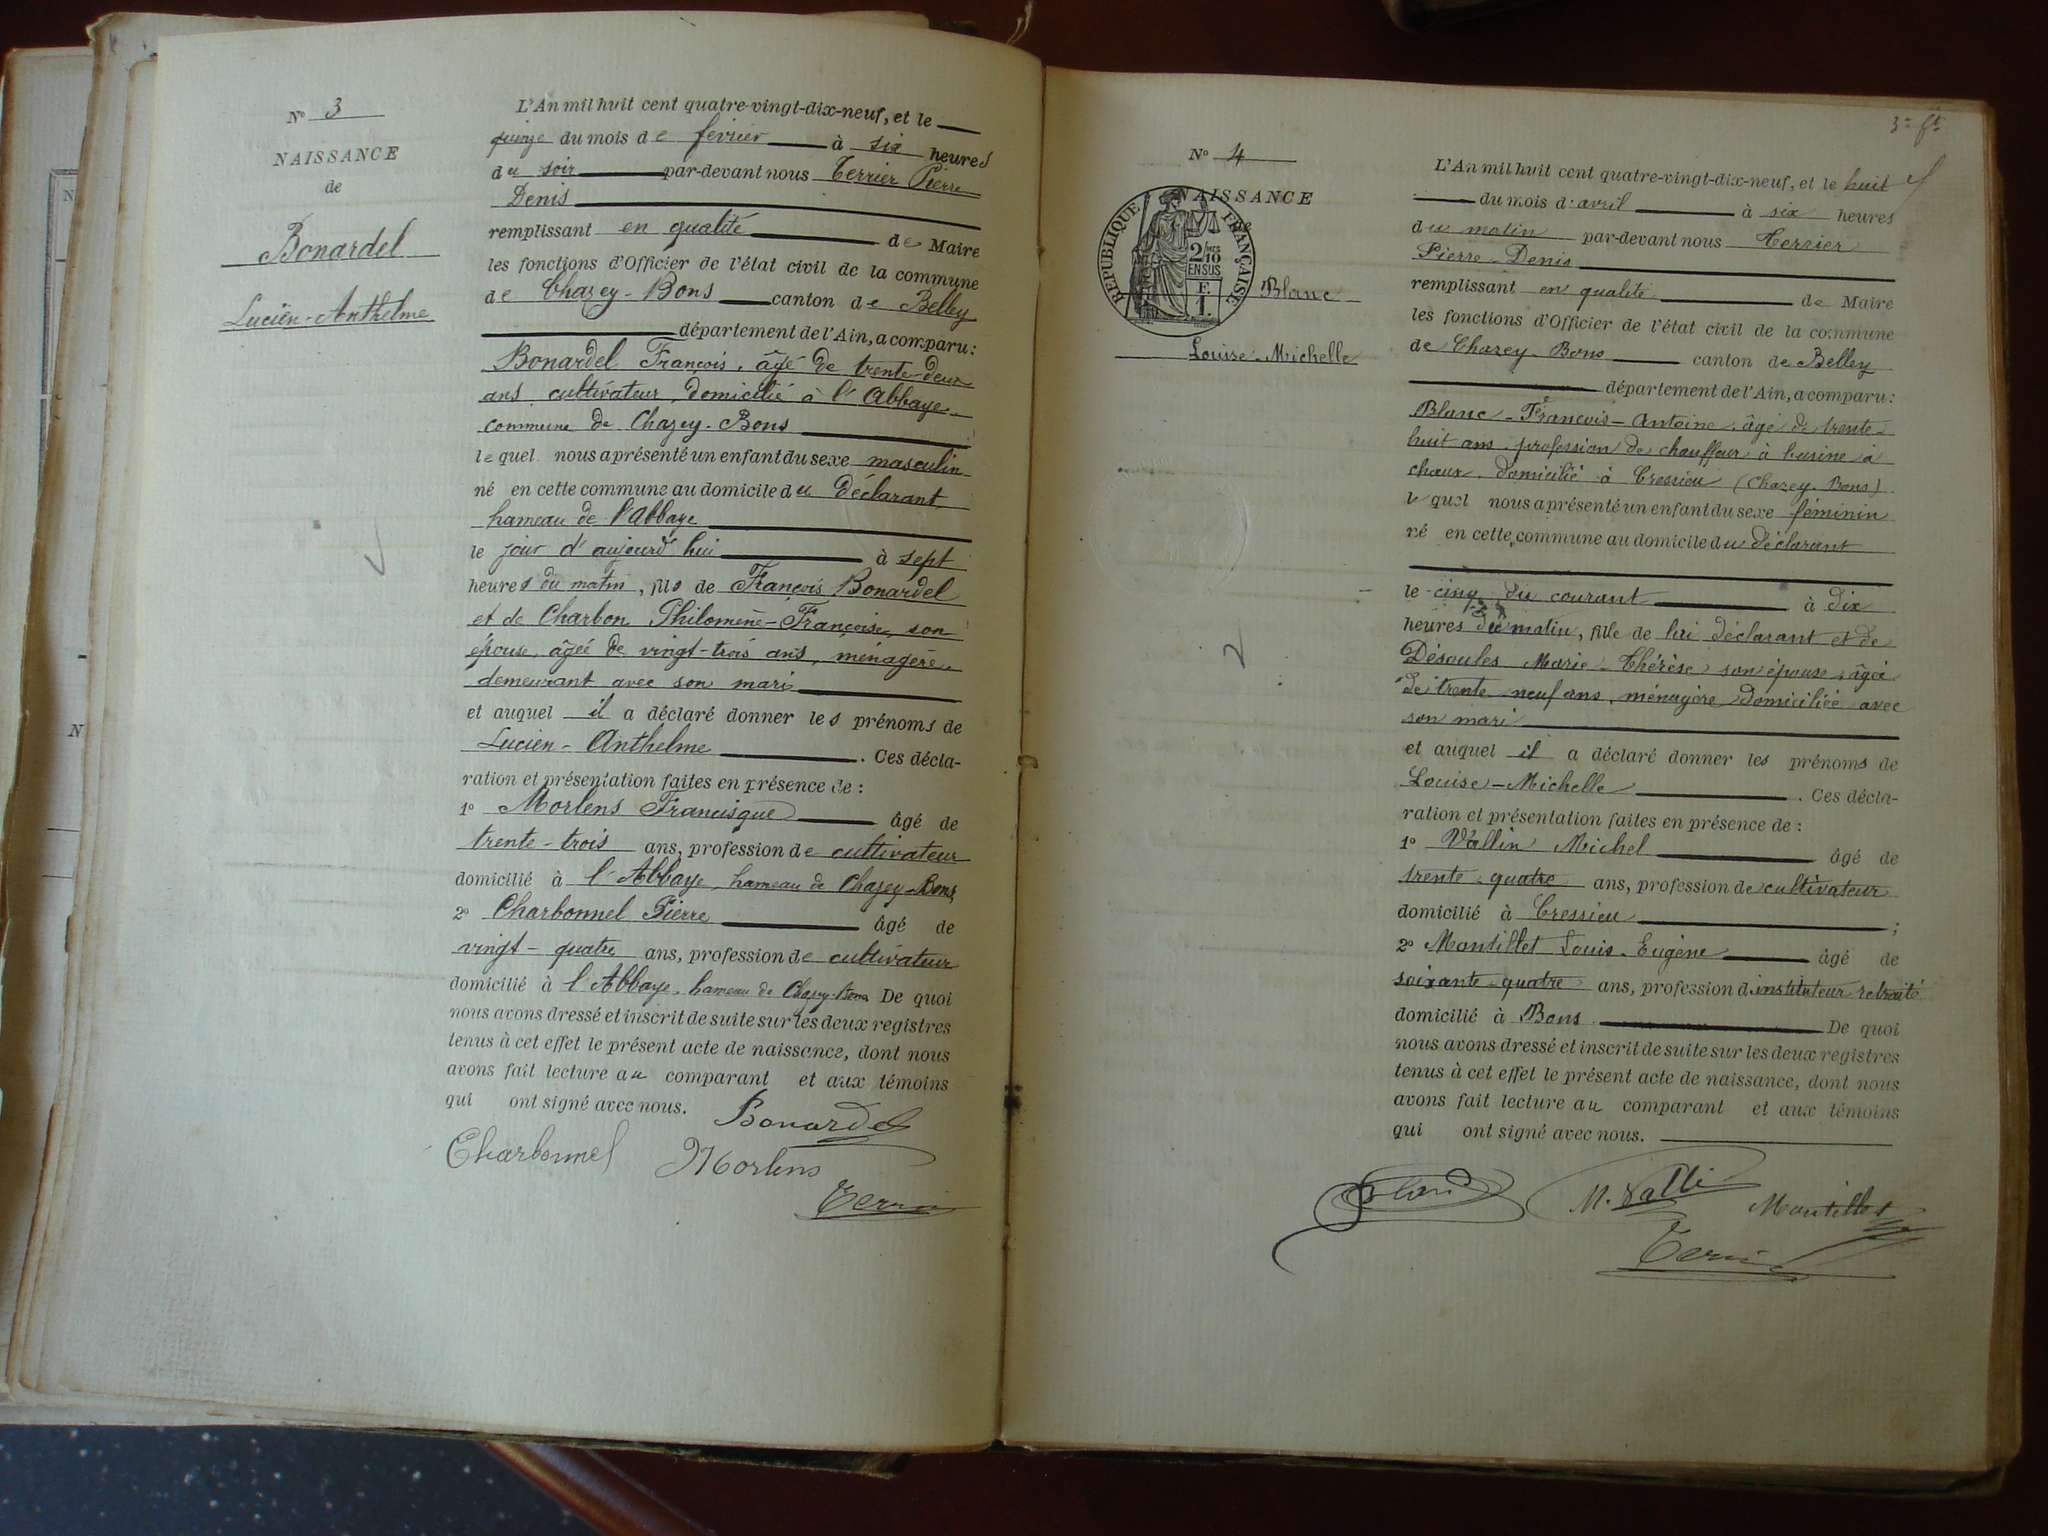 N° 3
NAISSANCE
de
Bonardel
Lucien-Anthelme
L'An mil huit cent quatre-vingt-dix-neuf, et le
quinze du mois de février à six heures
du soir par-devant nous Terrier Pierre
Denis
remplissant en qualité de Maire
les fonctions d'Officier de l'état civil de la commune
de Chazey-Bons canton de Belley
département de l'Ain, a comparu:
Bonardel François, âgé de trente-deux
ans cultivateur, domicilié à l'Abbaye
commune de Chazey-Bons
lequel nous a présenté un enfant du sexe masculin
né en cette commune au domicile du déclarant,
hameau de l'abbaye
le jour d'aujourd'hui à sept
heures du matin, fils de François Bonardel
et de Charbon Philomène-Françoise, son
épouse, âgée de vingt-trois ans, ménagère
demeurant avec son mari
et auquel il a déclaré donner les prénoms de
Lucien-Anthelme. Ces décla-
ration et présentation faites en présence de:
1° Morlens Francisque âgé de
trente-trois ans, profession de cultivateur
domicilié à l'Abbaye, hameau de Chazey-Bons
2° Charbonnel Pierre âgé de
vingt-quatre ans, profession de cultivateur
domicilié à l'Abbaye, hameau de Chazey-Bons De quoi
nous avons dressé et inscrit de suite sur les deux registres
tenus à cet effet le présent acte de naissance, dont nous
avons fait lecture au comparant et aux témoins
qui ont signé avec nous. Bonardel
Charbonnel Morlens
3e ft
N° 4
NAISSANCE
RÉPUBLIQUE FRANÇAISE
2/10
EN SUS
F.
1.
Blanc
Louise-Michelle
L'An mil huit cent quatre-vingt-dix-neuf, et le huit
du mois d'avril à six heures
du matin par-devant nous Terrier
Pierre-Denis
remplissant en qualité de Maire
les fonctions d'Officier de l'état civil de la commune
de Chazey-Bons canton de Belley
département de l'Ain, a comparu:
Blanc-François-Antoine, âgé de trente-
huit ans, profession de chauffeur à lusine a
chaux, domicilié à Cressieu (Chazey-Bons)
lequel nous a présenté un enfant du sexe féminin
né en cette commune au domicile du déclarant
le cinq du courant à dix
heures du matin, fille de lui déclarant et de
Désoules Marie-Thérèse son épouse, âgée
de trente-neuf ans, ménagère domiciliée avec
son mari
et auquel il a déclaré donner les prénoms de
Louise-Michelle. Ces décla-
ration et présentation faites en présence de:
1° Vallin Michel âgé de
trente-quatre ans, profession de cultivateur
domicilié à Cressieu;
2° Montillet Louis-Eugène âgé de
soixante-quatre ans, profession d'instituteur retraité
domicilié à Bons. De quoi
nous avons dressé et inscrit de suite sur les deux registres
tenus à cet effet le présent acte de naissance, dont nous
avons fait lecture au comparant et aux témoins
qui ont signé avec nous.
M. Valli Montillet